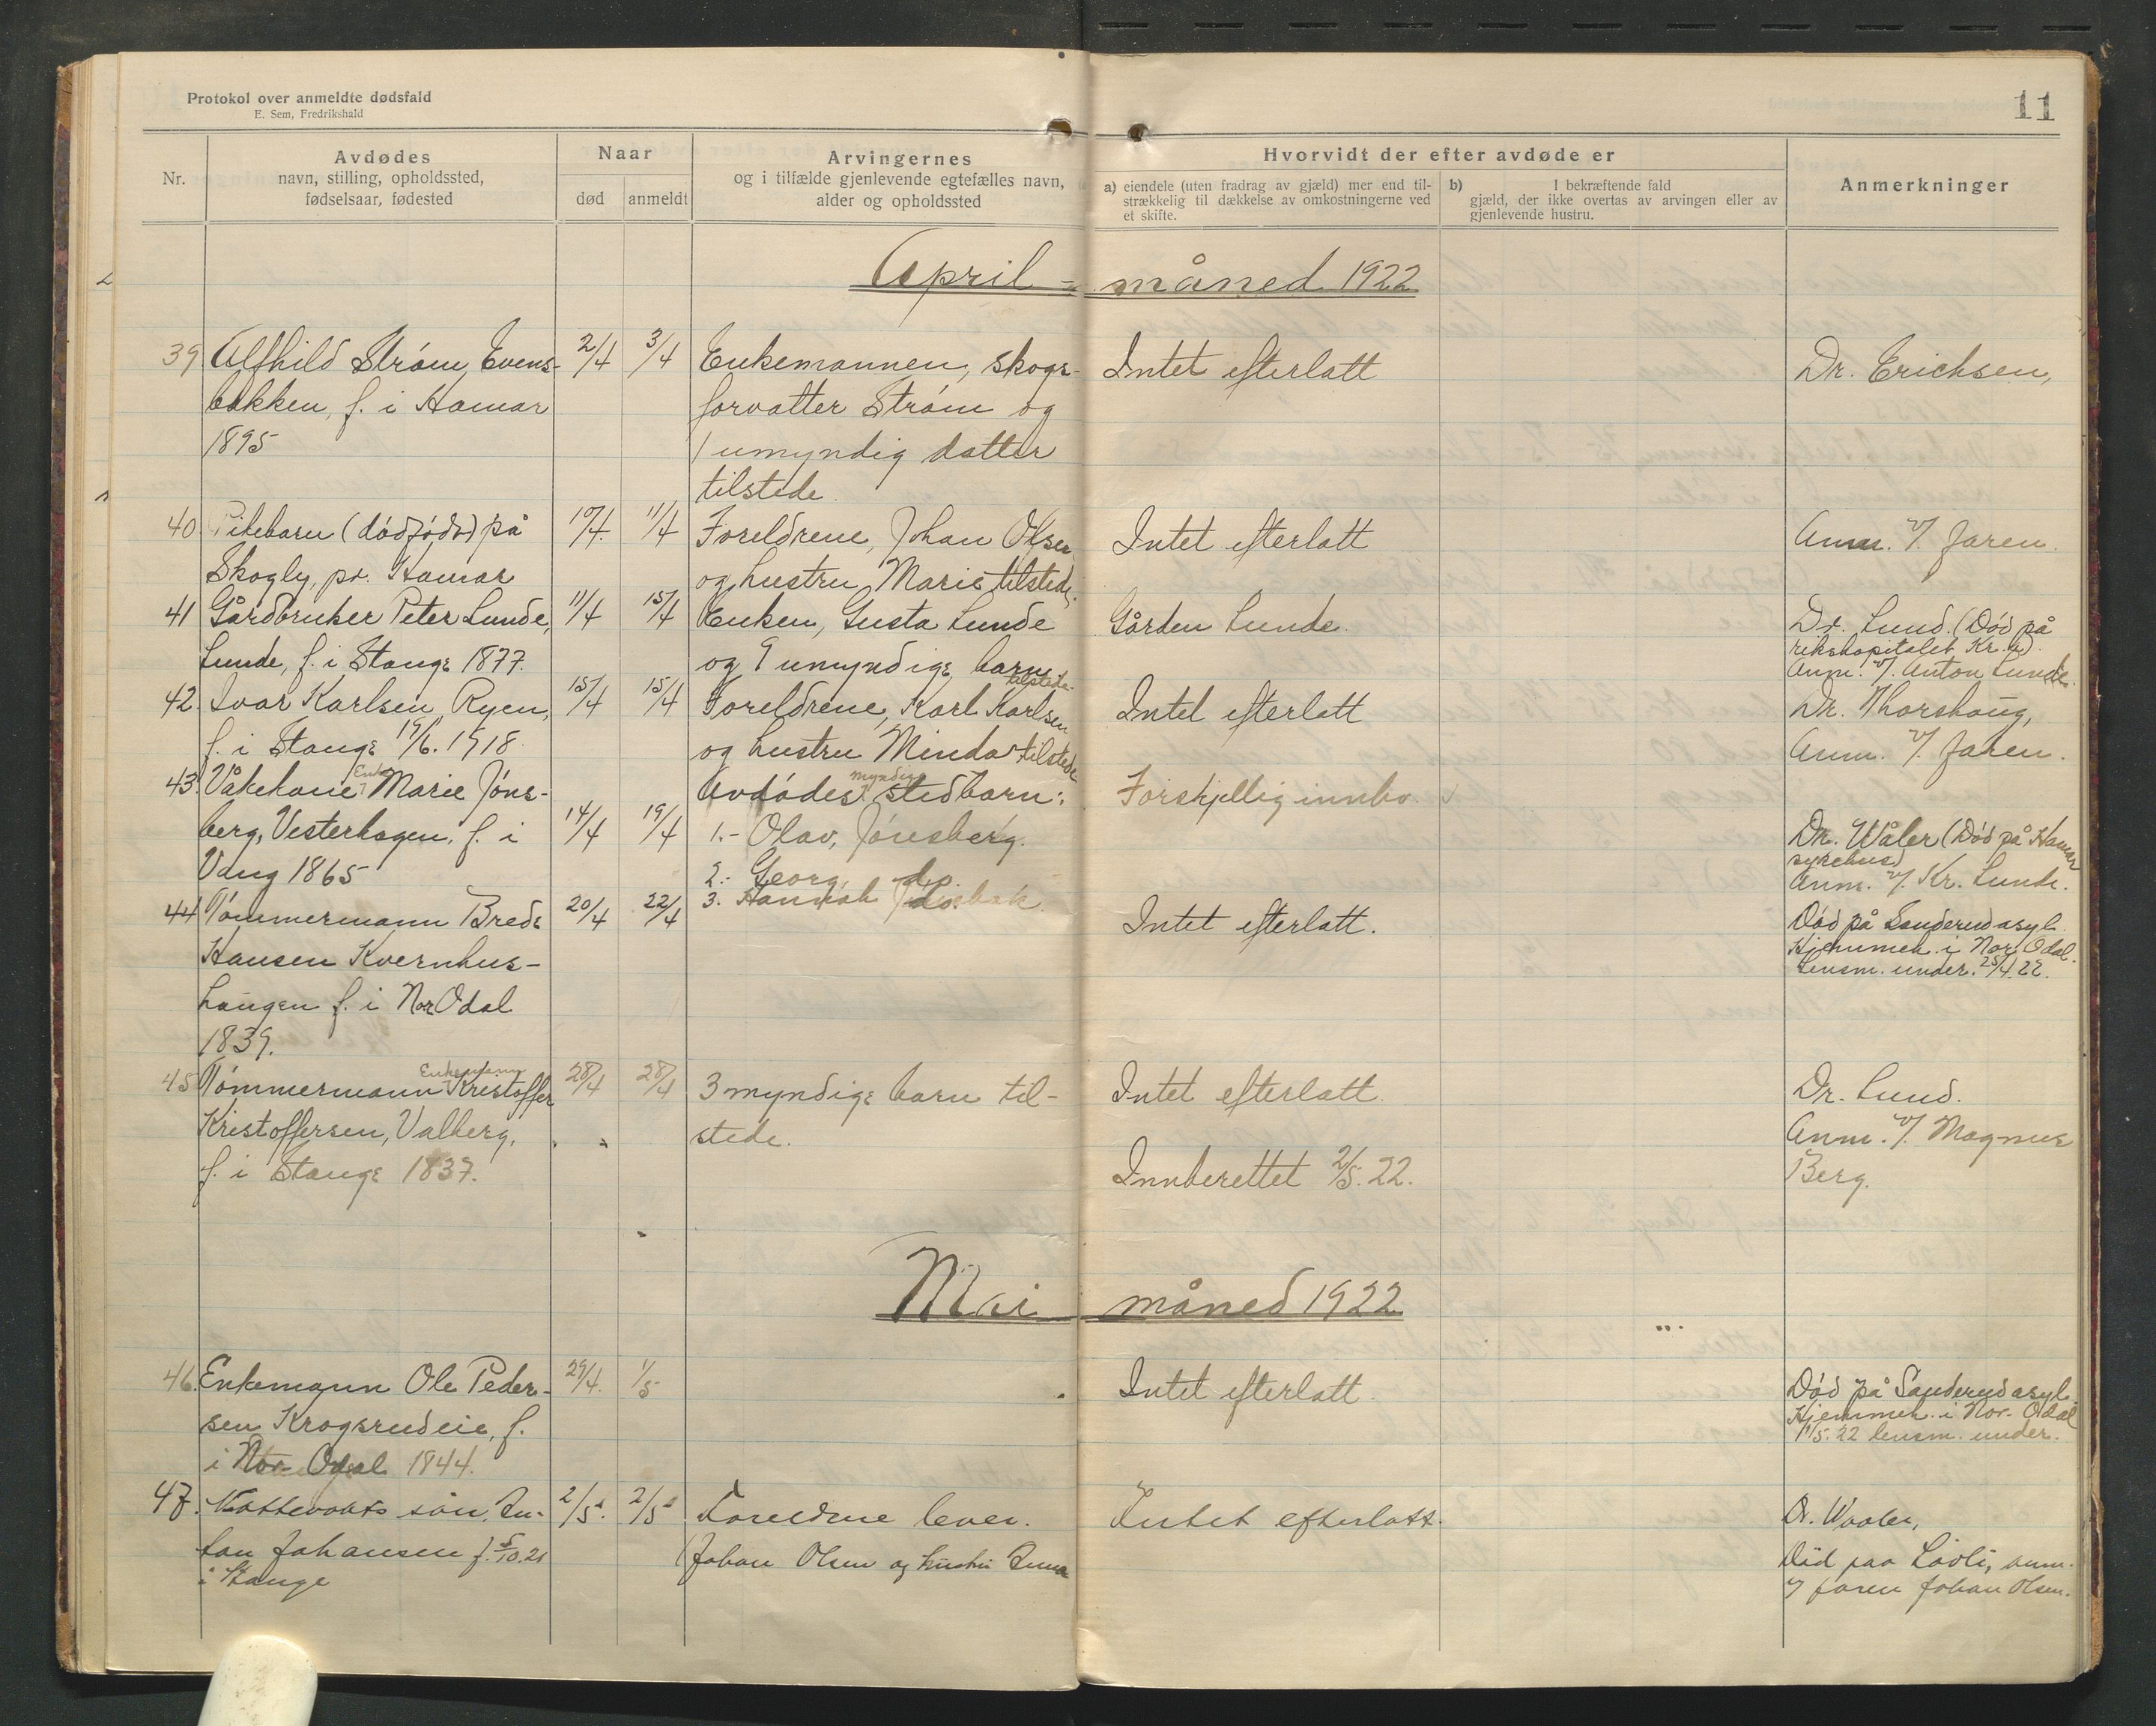 Protokol over anmeldte dødsfald
E. Sem, Fredrikshald
11
Nr.
Avdødes
navn, stilling, opholdssted,
fødselsaar, fødested
Naar
død
anmeldt
Arvingernes
og i tilfælde gjenlevende egtefælles navn,
alder og opholdssted
Hvorvidt der efter avdøde er
a) eiendele (uten fradrag av gjæld) mer end til-
strækkelig til dækkelse av omkostningerne ved
et skifte.
b) I bekræftende fald
gjæld, der ikke overtas av arvingen eller av
gjenlevende hustru.
Anmerkninger
April - måned 1922
39 Alfhild Strøm, Evens- 2/4 3/4 Enkemannen, skogs- Intet efterlatt Dr. Erichsen,
bakken, f. i Hamar forvalter Strøm og
1895 1 umyndig datter
tilstede.
40 Pikebarn (dødfødt) på 10/4 11/4 Foreldrene, Johan Olsen Intet efterlatt Anm. v/. faren.
Skogly, pr. Hamar og hustru Marie tilstede.
41 Gårdbruker Peter Lunde, 11/4 15/4 Enken, Gusta Lunde Gården Lunde. Dr. Lund. (Død på
Lunde, f. i Stange 1877. og 9 umyndige barn tilstede. rikshospitalet Kr.a).
Anm. v/. Anton Lunde.
42. Ivar Karlsen Ryen, 15/4 15/4 Foreldrene, Karl Karlsen Intet efterlatt Dr. Thorshaug,
f. i Stange 19/6. 1918. og hustru Minda tilstede Anm. v/. faren.
43. Våkekone Enke Marie Jøns- 14/4 19/4 Avdødes myndige stedbarn: Forskjellig innbo.
berg, Vesterhagen, f. i 1.- Olav, Jønsberg. Dr. Wåler (Død på Hamar
Vang 1865 2.- Georg do. sykehus)
3. Hannah do. Anm. v/. Kr. Lunde.
44 Tømmermann Brede 20/4 22/4 Intet efterlatt. Død på Sanderud asyl.
Hansen Kvernhus- Hjemmeh. i Nor. Odal.
haugen f. i Nor Odal Lensm. under. 25/4.22.
1839.
45 Tømmermann Enkemann Kristoffer 28/4 28/4 3 myndige barn til- Intet efterlatt. Dr. Lund.
Kristoffersen, Valberg, stede. Anm. v/. Magnus
f. i Stange 1837. Innberettet 2/5. 22. Berg.
Mai måned 1922
46. Enkemann Ole Peder- 29/4. 1/5 Intet efterlatt. Død på Sanderud asyl.
sen Krogsrudeie, f. Hjemmeh. i Nor- Odal
i Nor- Odal 1844. 1/5. 22 lensm. under.
47. søn, 2/5. 2/5 Foreldrene lever. Intet efterlatt. Dr. Waaler,
Johansen f. 5/10.21 (Johan Olsen og hustru Anna Død paa Lövli, anm.
i Stange v/ faren Johan Olsen.